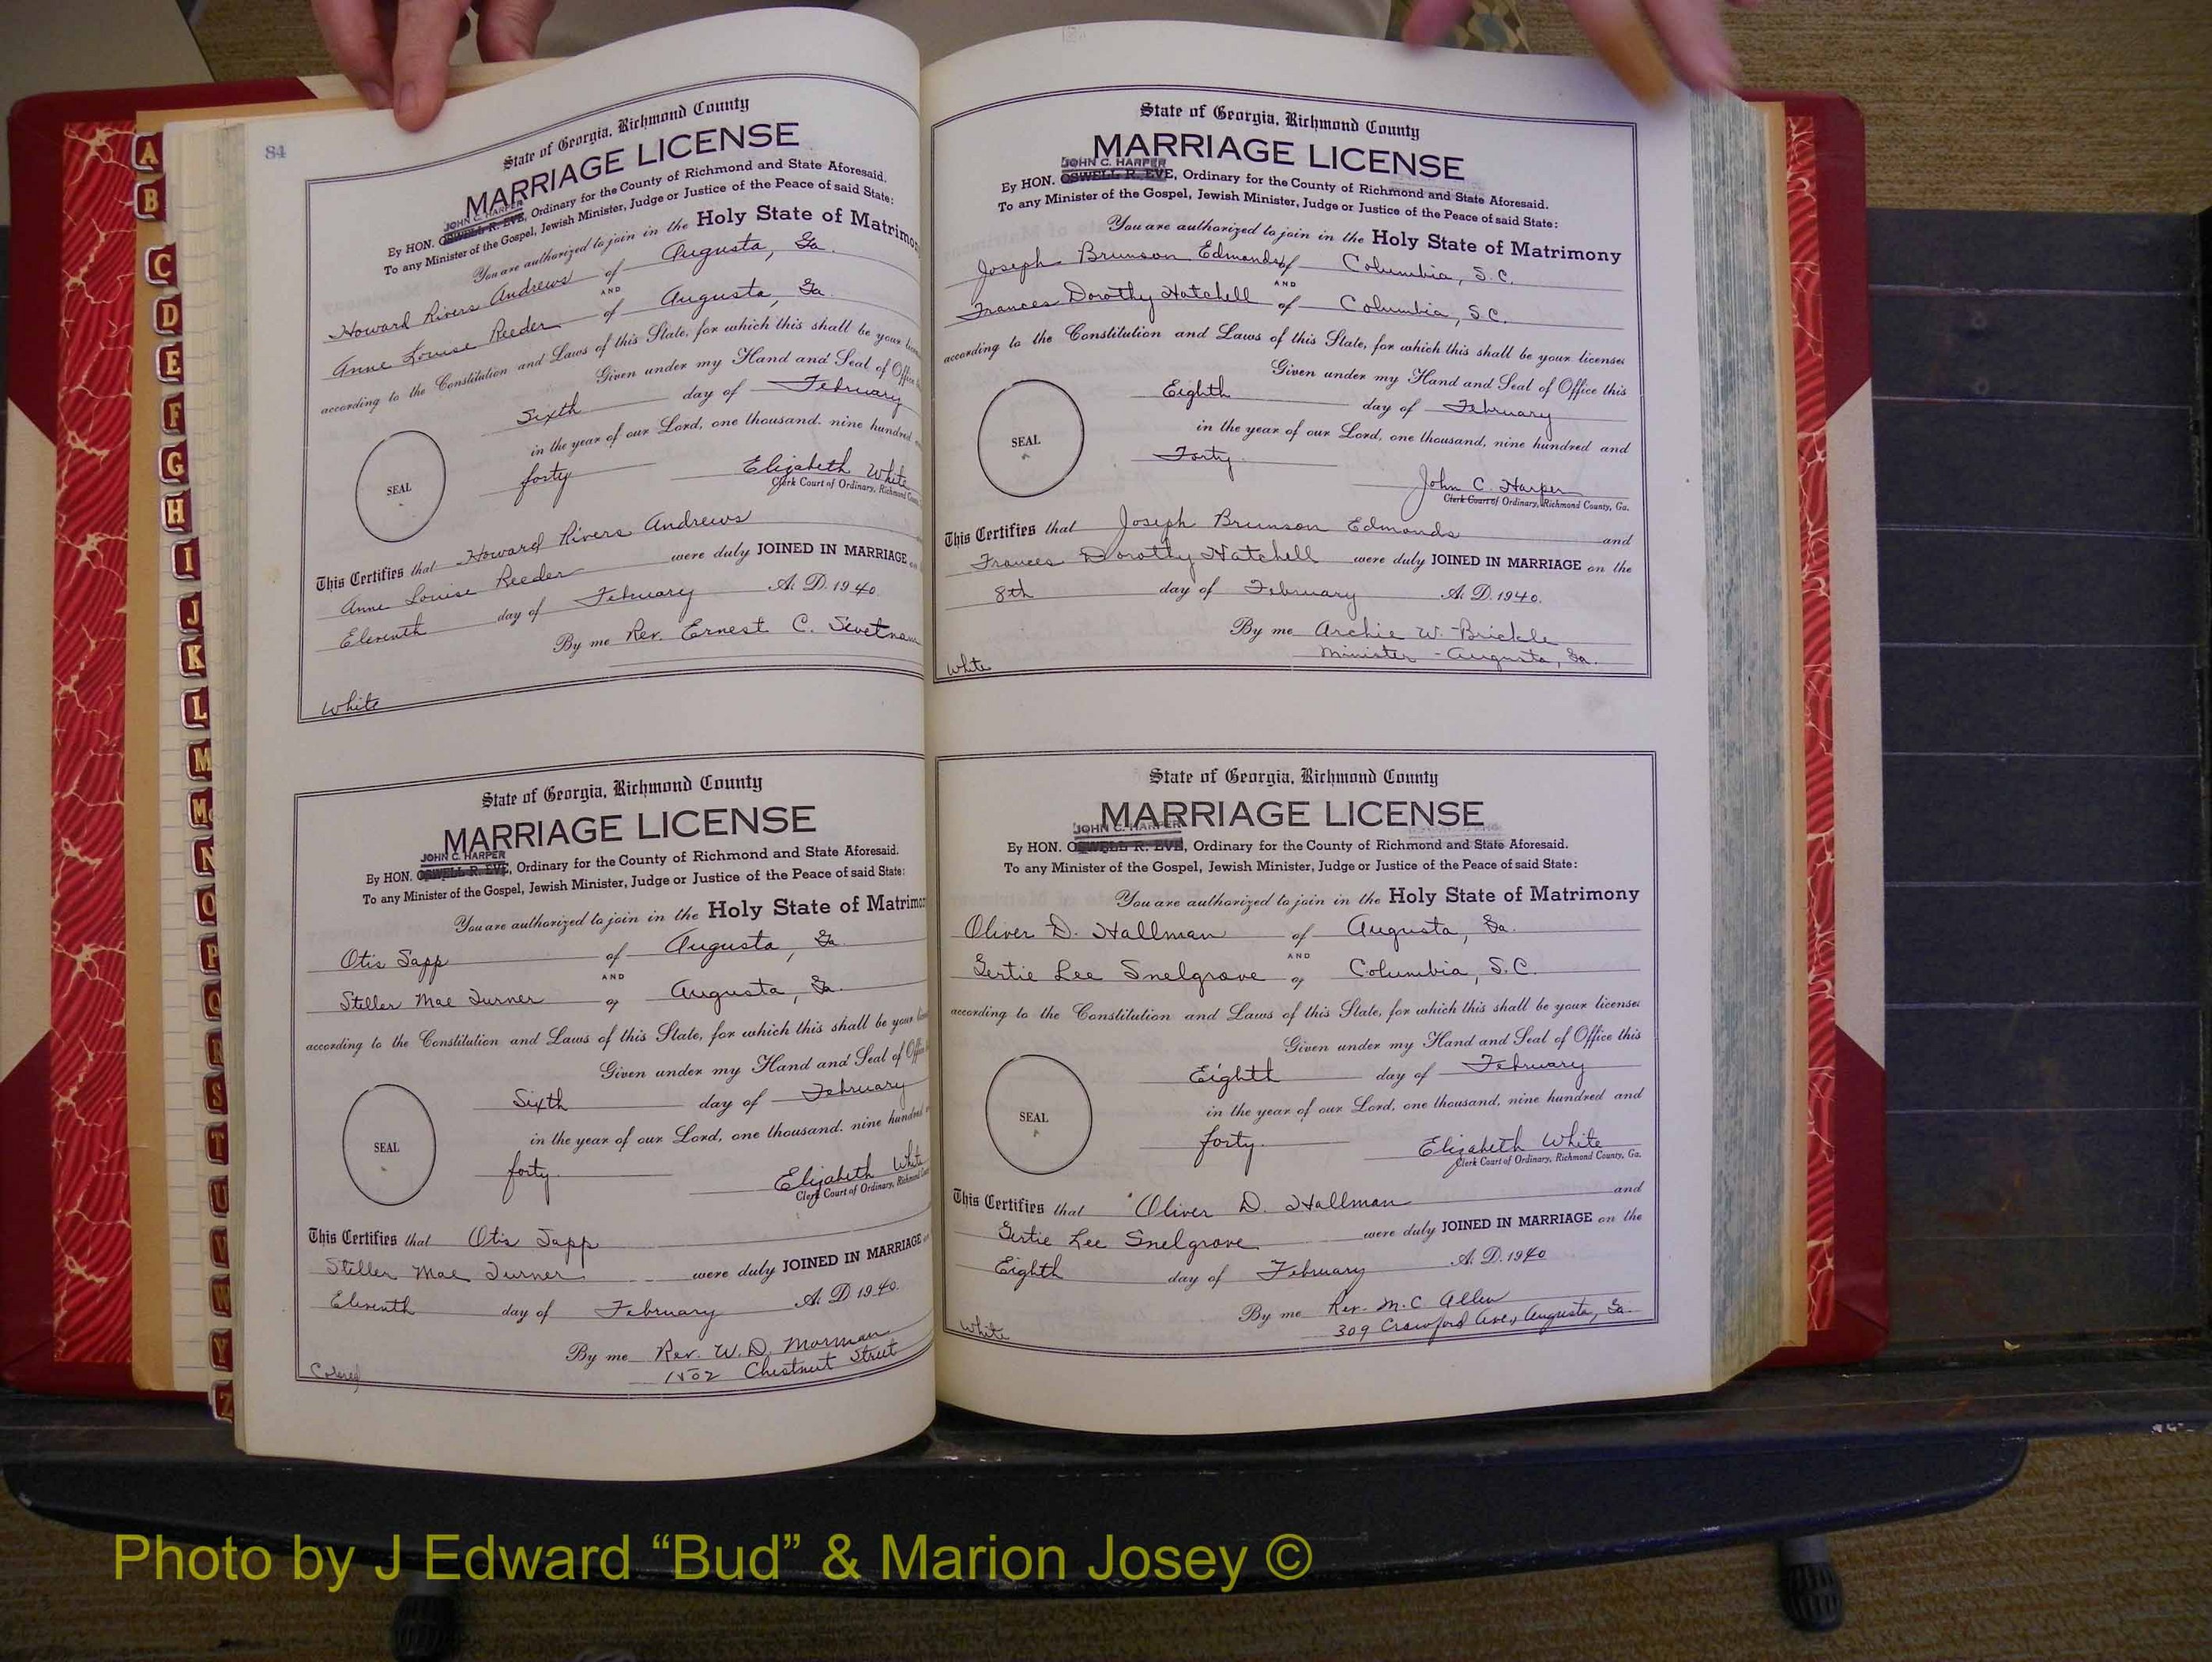 84
A
B
C
D
E
F
G
H
I
J
K
L
M
Mc
N
O
P
Q
R
S
T
U
V
W
Y
Z
State of Georgia, Richmond County
MARRIAGE LICENSE
JOHN C. HARPER
By HON. OSWELL R. EVE, Ordinary for the County of Richmond and State Aforesaid.
To any Minister of the Gospel, Jewish Minister, Judge or Justice of the Peace of said State:
You are authorized to join in the Holy State of Matrimo
Howard Rivers Andrews of Augusta, Ga.
AND
Anne Louise Reeder of Augusta, Ga.
according to the Constitution and Laws of this State, for which this shall be your
Given under my Hand and Seal of Office
Sixth day of February
in the year of our Lord, one thousand, nine hundred
forty
SEAL
Elizabeth White
Clerk Court of Ordinary, Richmond
This Certifies that Howard Rivers Andrews
Anne Louise Reeder were duly JOINED IN MARRIAGE
Eleventh day of February A. D. 1940.
By me Rev. Ernest C.
White
State of Georgia, Richmond County
MARRIAGE LICENSE
JOHN C. HARPER
By HON. OSWELL R. EVE, Ordinary for the County of Richmond and State Aforesaid.
To any Minister of the Gospel, Jewish Minister, Judge or Justice of the Peace of said State:
You are authorized to join in the Holy State of Matrimo
Otis Sapp of Augusta, Ga.
AND
Steller Mae Turner of Augusta, Ga.
according to the Constitution and Laws of this State, for which this shall be your
Given under my Hand and Seal of Office
Sixth day of February
in the year of our Lord, one thousand, nine hundred
forty.
SEAL
Elizabeth White
Clerk Court of Ordinary, Richmond
This Certifies that Otis Sapp
Steller Mae Turner were duly JOINED IN MARRIAGE
Eleventh day of February A. D. 1940.
By me Rev. W. D. Morman
1502 Chestnut Street
Colored
State of Georgia, Richmond County
MARRIAGE LICENSE
JOHN C. HARPER
By HON. OSWELL R. EVE, Ordinary for the County of Richmond and State Aforesaid.
To any Minister of the Gospel, Jewish Minister, Judge or Justice of the Peace of said State:
You are authorized to join in the Holy State of Matrimony
Joseph Brunson Edmonds of Columbia, S.C.
AND
Frances Dorothy Hatchell of Columbia, S.C.
according to the Constitution and Laws of this State, for which this shall be your license:
Given under my Hand and Seal of Office this
Eighth day of February
in the year of our Lord, one thousand, nine hundred and
Forty.
SEAL
John C. Harper
Clerk Court of Ordinary, Richmond County, Ga.
This Certifies that Joseph Brunson Edmonds and
Frances Dorothy Hatchell were duly JOINED IN MARRIAGE on the
8th day of February A. D. 1940.
By me Archie W. Brickle
Minister - Augusta, Ga.
White
State of Georgia, Richmond County
MARRIAGE LICENSE
JOHN C. HARPER
By HON. OSWELL R. EVE, Ordinary for the County of Richmond and State Aforesaid.
To any Minister of the Gospel, Jewish Minister, Judge or Justice of the Peace of said State:
You are authorized to join in the Holy State of Matrimony
Oliver D. Hallman of Augusta, Ga.
AND
Gertie Lee Snelgrove of Columbia, S.C.
according to the Constitution and Laws of this State, for which this shall be your license:
Given under my Hand and Seal of Office this
Eighth day of February
in the year of our Lord, one thousand, nine hundred and
forty.
SEAL
Elizabeth White
Clerk Court of Ordinary, Richmond County, Ga.
This Certifies that Oliver D. Hallman and
Gertie Lee Snelgrove were duly JOINED IN MARRIAGE on the
Eighth day of February A. D. 1940
By me Rev. M. C Allen
309 Crawford Ave, Augusta, Ga.
White
Photo by J Edward “Bud” & Marion Josey ©